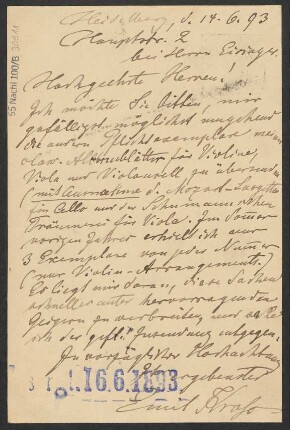 Heidelberg, d. 14.6.93
Hauptstr. 2
bei Herrn Eisinger.
Hochgeehrte Herren!
Ich möchte Sie bitten, mir
gefälligst möglichst umgehend
die andern Pflichtexemplare meiner
Albumblätter für Violine,
Viola und Violoncell zu übersenden
(mit Ausnahme d. Mozart-Larghetto
für Cello und der Schumann'schen
Träumerei für Viola. Im Sommer
vorigen Jahres erhielt ich nur
3 Exemplare von jeder Numer
(nur Violin-Arrangements.)
Es liegt mir daran, diese Sachen
schneller unter hervorragenden
Geigern zu verbreiten, und
ich der gefl. Zusendung entgegen.
In vorzüglichster Hochachtung
Ihr ergebenster
Emil Kross
16.6.1893
55 Nachl 100/B